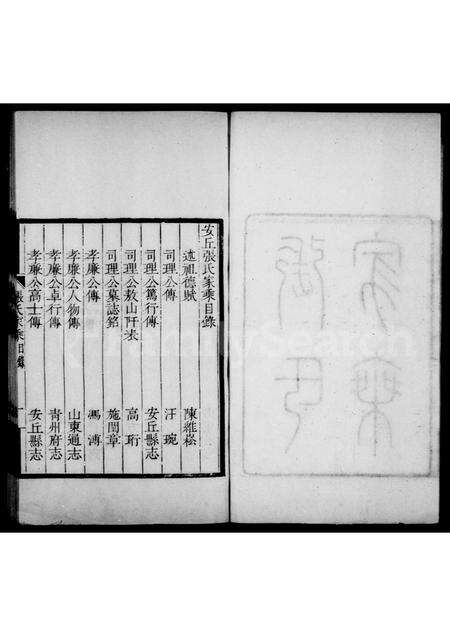 安丘張氏家乘目錄
述祖德賦 陳維崧
司理公傳 汪琬
司理公篤行傳 安丘縣志
司理公敖山阡表 高珩
司理公墓誌銘 施閏章
孝廉公傳 馮溥
孝廉公人物傳 山東通志
孝廉公卓行傳 青州府志
孝廉公高士傳 安丘縣志
張氏家乘目錄
一
家乘
張氏
FamilySearch